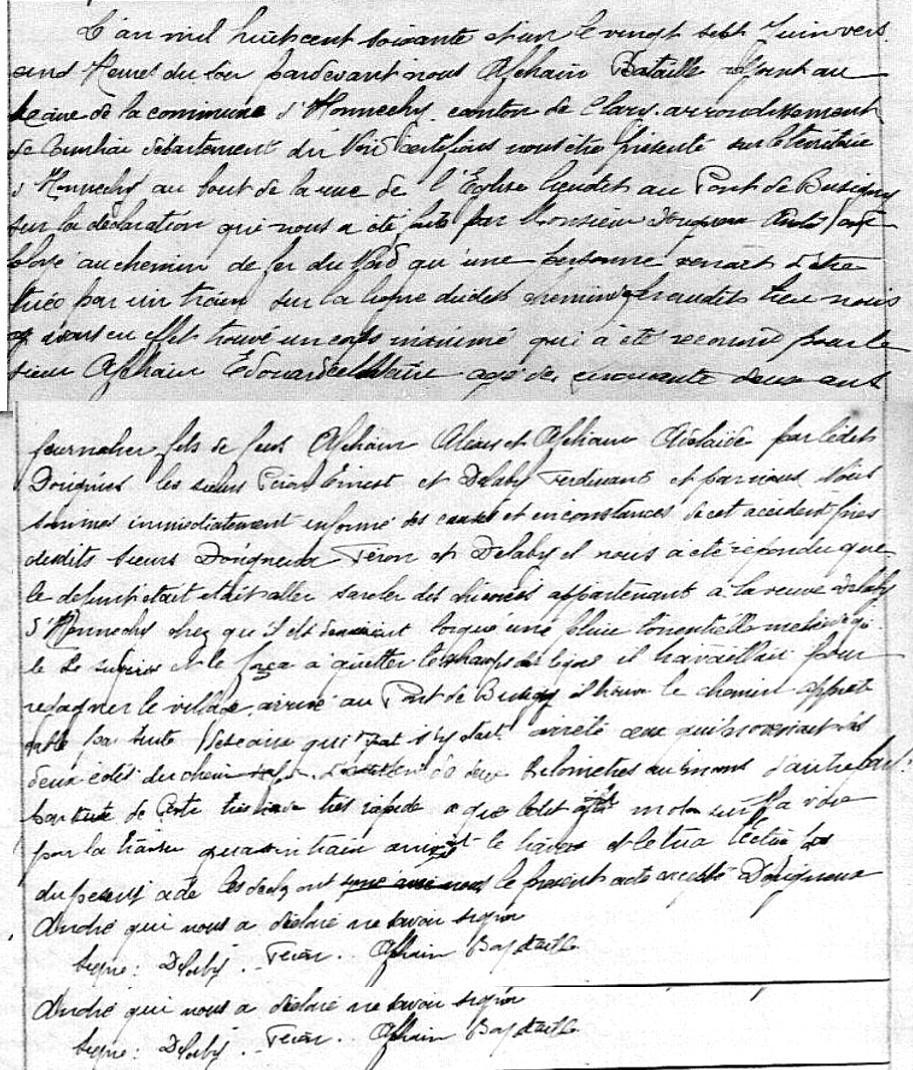 L'an mil huit cent soixante et un le vingt sept Juin vers
cinq heures du soir pardevant nous Afchain Bataille adjoint au
Maire de la commune d'Honnechy canton de Clary arrondissement
de Cambrai département du Nord certifions nous être présenté sur le térritoire
d'Honnechy au bout de la rue de l'Eglise lieudit au Pont de Busigny
sur la déclaration qui nous a été faite par Monsieur André
ployé au chemin de fer du Nord qu'une personne venait d'être
tuée par un train sur la ligne dudit chemin audit lieu nous
y avons en effet trouvé un corps inanimé qui a été reconnu pour le
sieur Afchain Edouard agé de cinquante deux ans
journalier fils de feus Afchain Alexis et Afchain Adelaïde par ledit
Doigneux les sieurs Féron Ernest et Delaby Ferdinand et par nous Nous
sommes immédiatement informé des causes et circonstances de cet accident près
desdits sieurs Doigneux Féron et Delaby il nous a été répondu que
le defunt était était aller sarcler des chicorées appartenant à la veuve Delaby
d'Honnechy chez qu'il lorque une pluie torrentielle
le surpris et le força à quitter le champ il travaillait pour
regagner le village, arrivé au Pont de Busigny il trouva le chemin
par suite qui s'y était arrêté ceux qui provenait des
deux cotés du chemin de deux kilomètres au moins d'autre part
par suite de très rapide que ledit monta sur la voie
pour la traverser quand un train arrivait le et le tua lecture
du présent acte les ont signé avec nous le présent acte excepté Doigneux
André qui nous a déclaré ne savoir signer
Signé: Delaby. Féron. Afchain Bataille
André qui nous a déclaré ne savoir signer
Signé: Delaby. Féron. Afchain Bataille